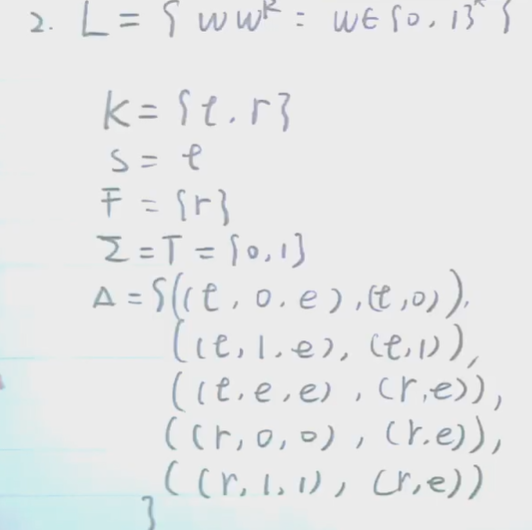 2. L = { w w^R : w ∈ {0, 1}* }
K = {t, r}
S = t
F = {r}
Σ = T = {0, 1}
Δ = {((t, 0, e), (t, 0)),
((t, 1, e), (t, 1)),
((t, e, e), (r, e)),
((r, 0, 0), (r, e)),
((r, 1, 1), (r, e))
}